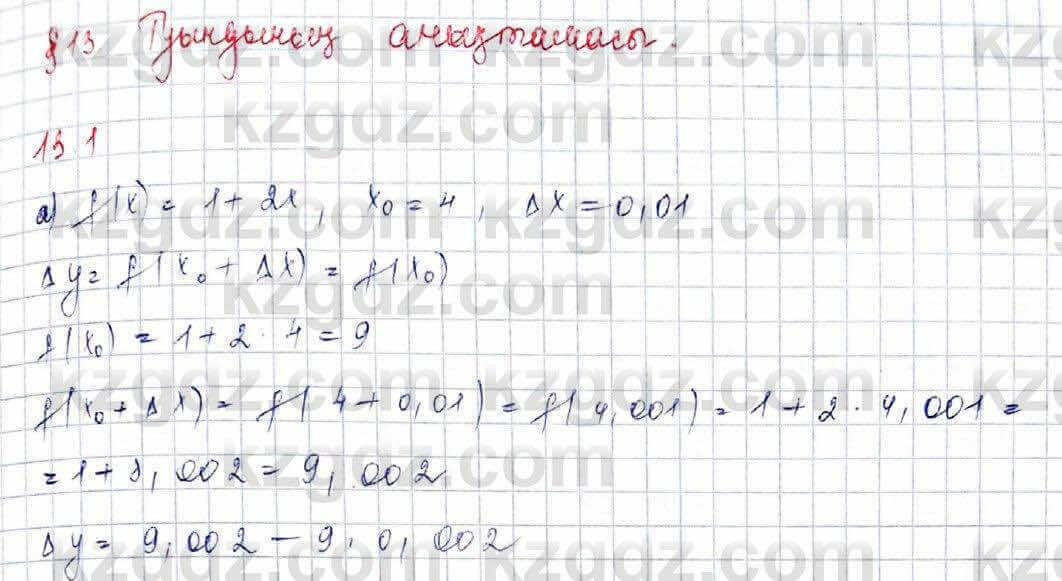 §13 Туындының анықтамасы.
13.1
а) f(x) = 1 + 2x, x₀ = 4, Δx = 0,01
Δy = f(x₀ + Δx) = f(x₀)
f(x₀) = 1 + 2 · 4 = 9
f(x₀ + Δx) = f(4 + 0,01) = f(4,001) = 1 + 2 · 4,001 =
= 1 + 8,002 = 9,002
Δy = 9,002 − 9 · 0,002
kzgdz.com